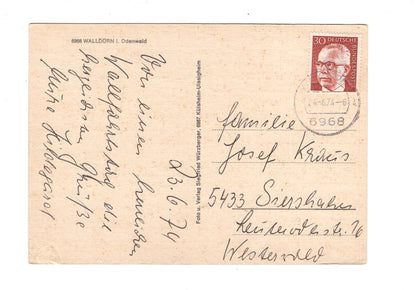 6968 WALLDÜRN i. Odenwald
Von einem herrlichen
Wallfahrtstag die
herzlichsten Grüße
23.6.74
Foto u. Verlag Siegfried Würzberger, 6981 Külsheim-Uissigheim
30
DEUTSCHE
BUNDESPOST
24-6.74-8
6968
Familie
Josef Kraus
5433 Siershahn
16
Westerwald